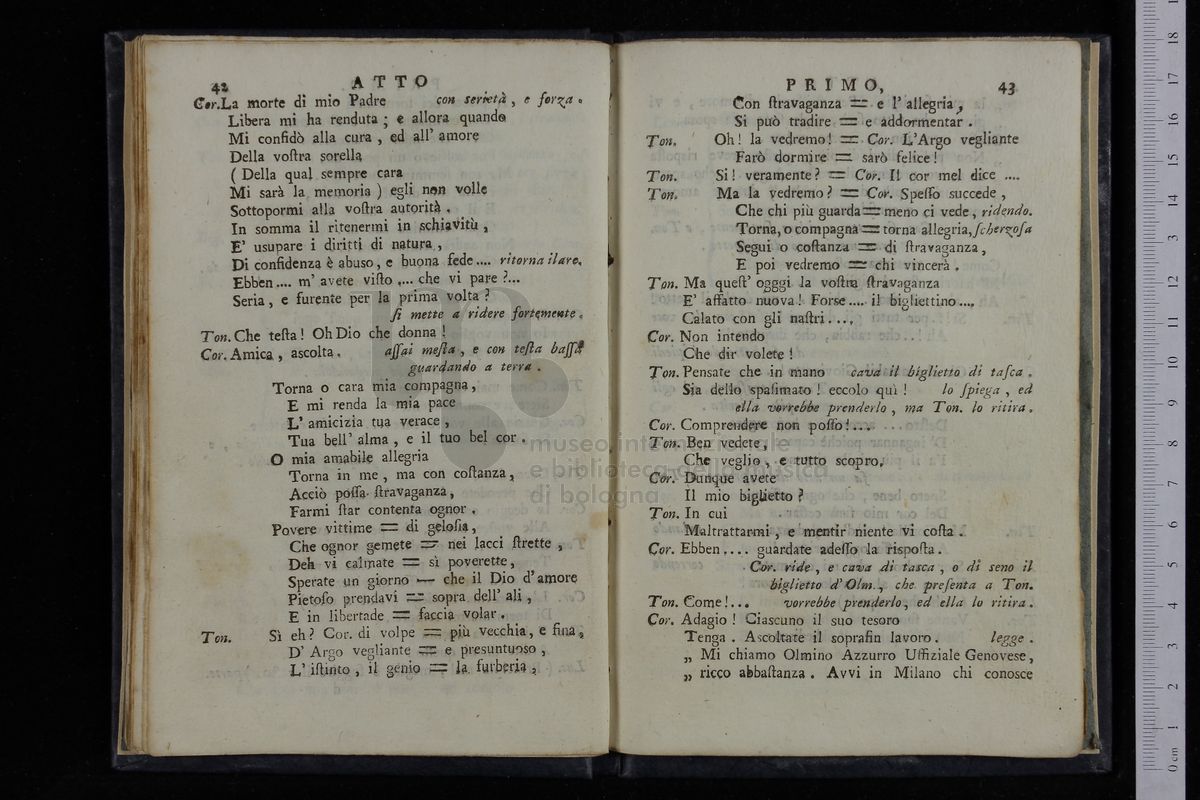 42 ATTO
Cor. La morte di mio Padre con serietà, e forza.
Libera mi ha renduta; e allora quando
Mi confidò alla cura, ed all' amore
Della voſtra sorella
(Della qual sempre cara
Mi sarà la memoria) egli non volle
Sottopormi alla voſtra autorità.
In somma il ritenermi in schiavitù,
E' usupare i diritti di natura,
Di confidenza è abuso, e buona fede.... ritorna ilare.
Ebben.... m' avete viſto .... che vi pare?...
Seria, e furente per la prima volta?
ſi mette a ridere fortemente.
Ton. Che teſta! Oh Dio che donna!
Cor. Amica, ascolta. aſſai meſta, e con teſta baſſa
guardando a terra.
Torna o cara mia compagna,
E mi renda la mia pace
L' amicizia tua verace,
Tua bell' alma, e il tuo bel cor.
O mia amabile allegria
Torna in me, ma con coſtanza,
Acciò poſſa ſtravaganza,
Farmi ſtar contenta ognor.
Povere vittime == di geloſia,
Che ognor gemete == nei lacci ſtrette,
Deh vi calmate == sì poverette,
Sperate un giorno — che il Dio d' amore
Pietoſo prendavi == sopra dell' ali,
E in libertade == faccia volar.
Ton. Sì eh? Cor. di volpe == più vecchia, e fina,
D' Argo vegliante == e presuntuoso,
L' iſtinto, il genio == la furberia,
PRIMO, 43
Con ſtravaganza == e l' allegria,
Si può tradire == e addormentar.
Ton. Oh! la vedremo! == Cor. L'Argo vegliante
Farò dormire == sarò felice!
Ton. Si! veramente? == Cor. Il cor mel dice ....
Ton. Ma la vedremo? == Cor. Speſſo succede,
Che chi più guarda == meno ci vede, ridendo.
Torna, o compagna == torna allegria, ſcherzoſa
Segui o coſtanza == di ſtravaganza,
E poi vedremo == chi vincerà.
Ton. Ma queſt' ogggi la voſtra ſtravaganza
E' affatto nuova! Forse.... il bigliettino....
Calato con gli naſtri....
Cor. Non intendo
Che dir volete!
Ton. Pensate che in mano cava il biglietto di taſca.
Sia dello spaſimato! eccolo quì! lo ſpiega, ed
ella vorrebbe prenderlo, ma Ton. lo ritira.
Cor. Comprendere non poſſo!...
Ton. Ben vedete,
Che veglio, e tutto scopro,
Cor. Dunque avete
Il mio biglietto?
Ton. In cui
Maltrattarmi, e mentir niente vi coſta.
Cor. Ebben.... guardate adeſſo la rispoſta.
Cor. ride, e cava di tasca, o di seno il
biglietto d' Olm., che preſenta a Ton.
Ton. Come!... vorrebbe prenderlo, ed ella lo ritira.
Cor. Adagio! Ciascuno il suo tesoro
Tenga. Ascoltate il soprafin lavoro. legge.
„ Mi chiamo Olmino Azzurro Uffiziale Genovese,
„ ricco abbaſtanza. Avvi in Milano chi conosce
museo internazionale
e biblioteca della musica
di bologna
0 cm 1 2 3 4 5 6 7 8 9 10 11 12 13 14 15 16 17 18